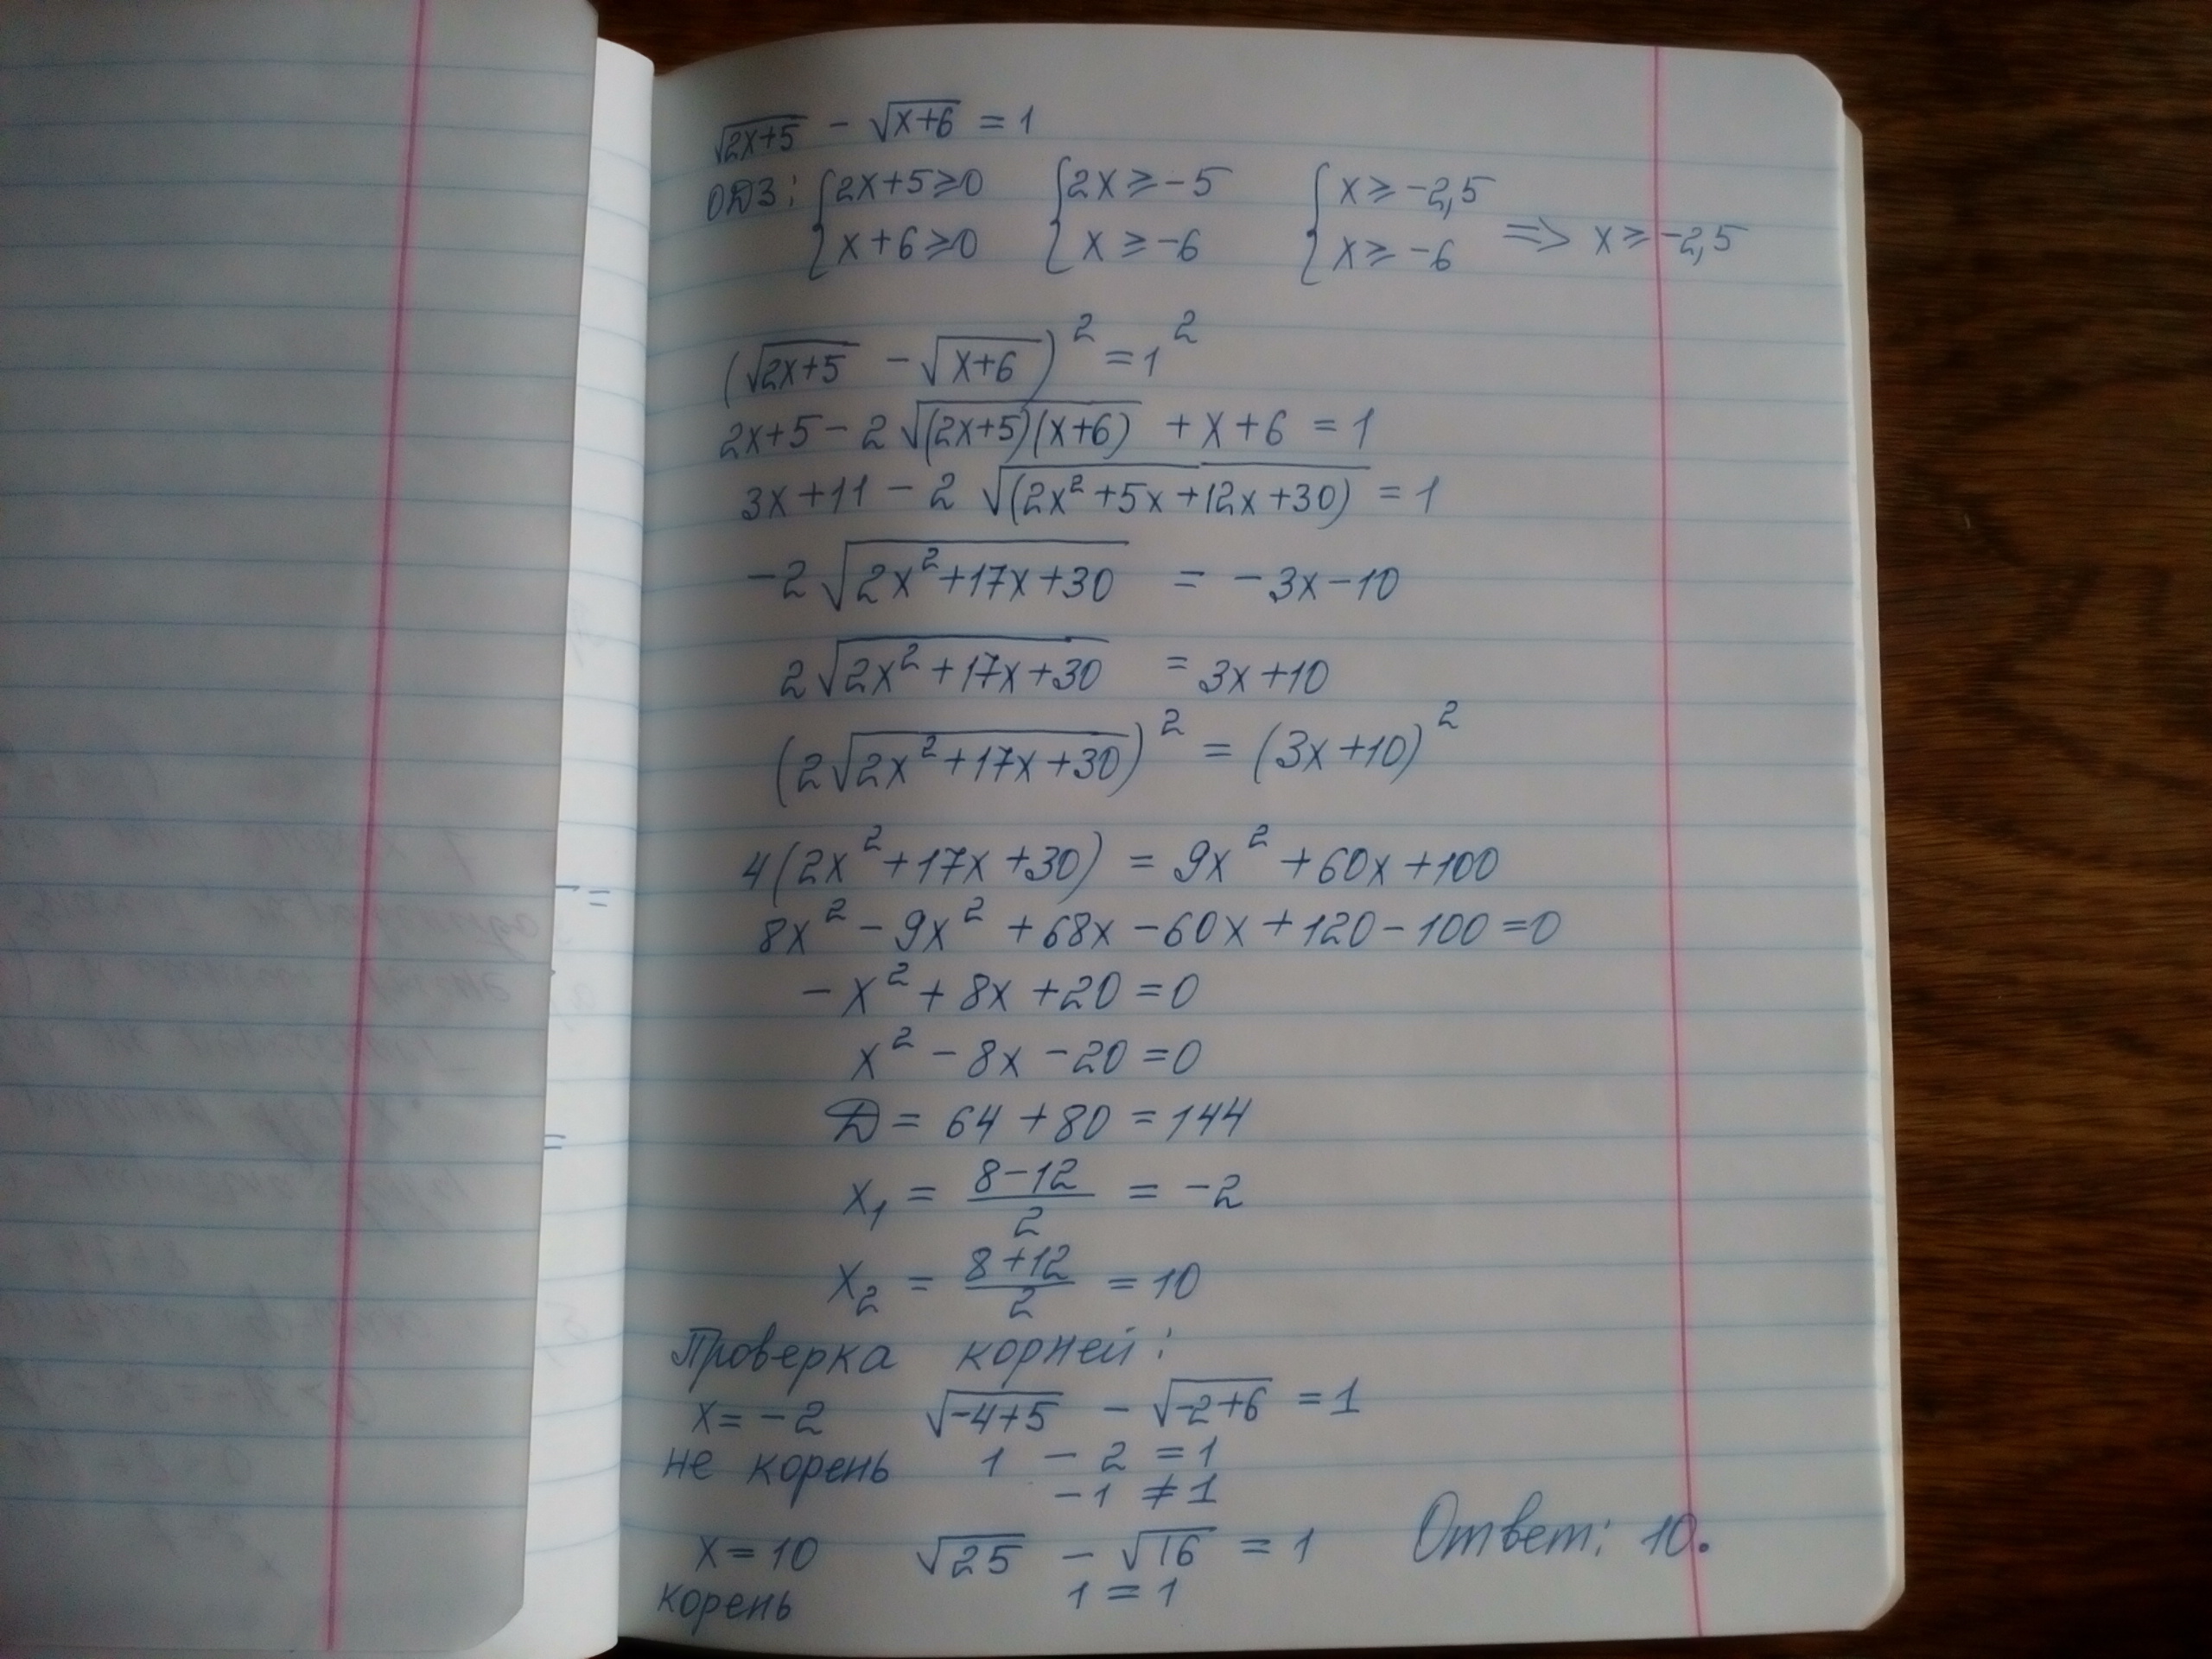 √(2x+5) − √(x+6) = 1
ОДЗ: {2x+5≥0 {2x≥−5 {x≥−2,5
{x+6≥0 {x≥−6 {x≥−6 => x≥−2,5
(√(2x+5) − √(x+6))² = 1²
2x+5−2√((2x+5)(x+6)) + x+6 = 1
3x+11 − 2√((2x²+5x+12x+30)) = 1
−2√(2x²+17x+30) = −3x−10
2√(2x²+17x+30) = 3x+10
(2√(2x²+17x+30))² = (3x+10)²
4(2x²+17x+30) = 9x²+60x+100
8x²−9x²+68x−60x+120−100=0
−x²+8x+20=0
x²−8x−20=0
D = 64+80=144
x₁ = (8−12)/2 = −2
x₂ = (8+12)/2 = 10
Проверка корней:
x=−2 √(−4+5) − √(−2+6) = 1
не корень 1 − 2 = 1
−1 ≠ 1
x=10 √25 − √16 = 1 Ответ: 10.
корень 1 = 1